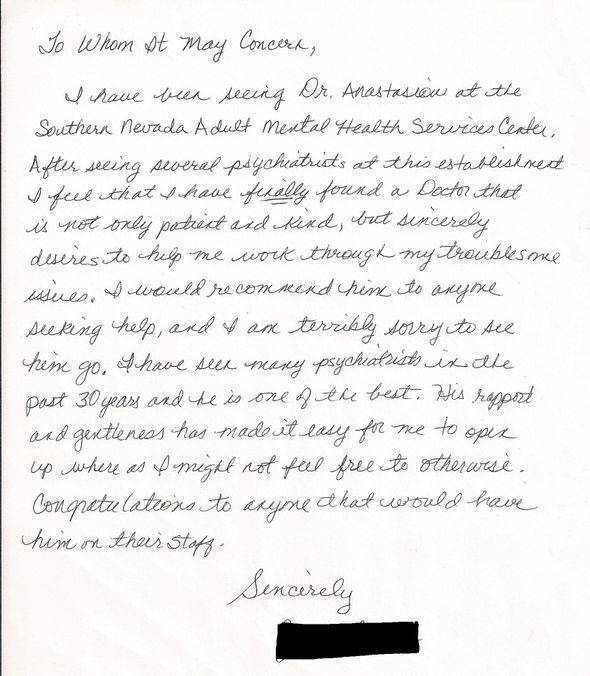 To Whom It May Concern,
I have been seeing Dr. Anastasiou at the
Southern Nevada Adult Mental Health Services Center.
After seeing several psychiatrists at this establishment
I feel that I have finally found a Doctor that
is not only patient and kind, but sincerely
desires to help me work through my troublesome
issues. I would recommend him to anyone
seeking help, and I am terribly sorry to see
him go. I have seen many psychiatrists in the
past 30 years and he is one of the best. His rapport
and gentleness has made it easy for me to open
up where as I might not feel free to otherwise.
Congratulations to anyone that would have
him on their staff.
Sincerely